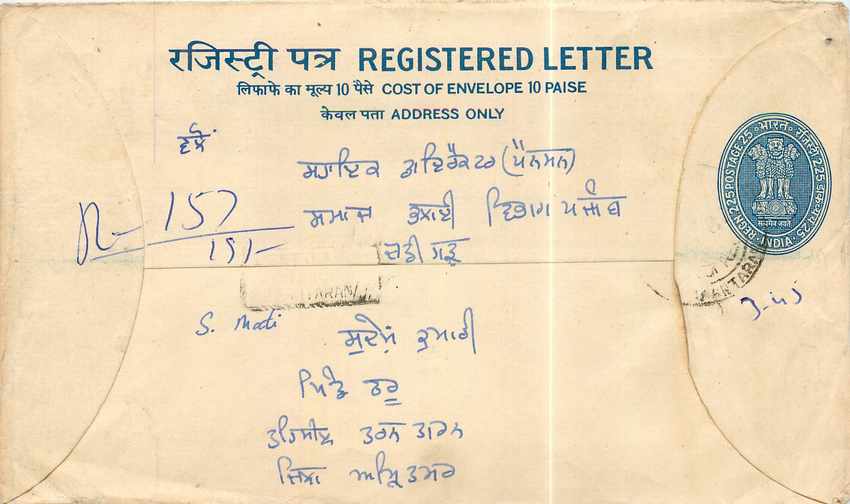 रजिस्ट्री पत्र REGISTERED LETTER
लिफाफे का मूल्य 10 पैसे COST OF ENVELOPE 10 PAISE
केवल पता ADDRESS ONLY
REGN. 2.25 POSTAGE 25 भारत रजिस्ट्री 2.25 डाक-भार 25
सत्यमेव जयते
INDIA
ਵਲੋਂ
ਸਹਾਇਕ ਡਾਇਰੈਕਟਰ (ਪੈਨਸ਼ਨ)
R- 157
ਸਮਾਜ ਭਲਾਈ ਵਿਭਾਗ ਪੰਜਾਬ
191-
ਚੰਡੀਗੜ੍ਹ
S. Mati
ਸੁਦੇਸ਼ ਕੁਮਾਰੀ
3-45
ਪਿੰਡ ਠਰੂ
ਤਹਿਸੀਲ ਤਰਨ ਤਾਰਨ
ਜ਼ਿਲਾ ਅੰਮ੍ਰਿਤਸਰ